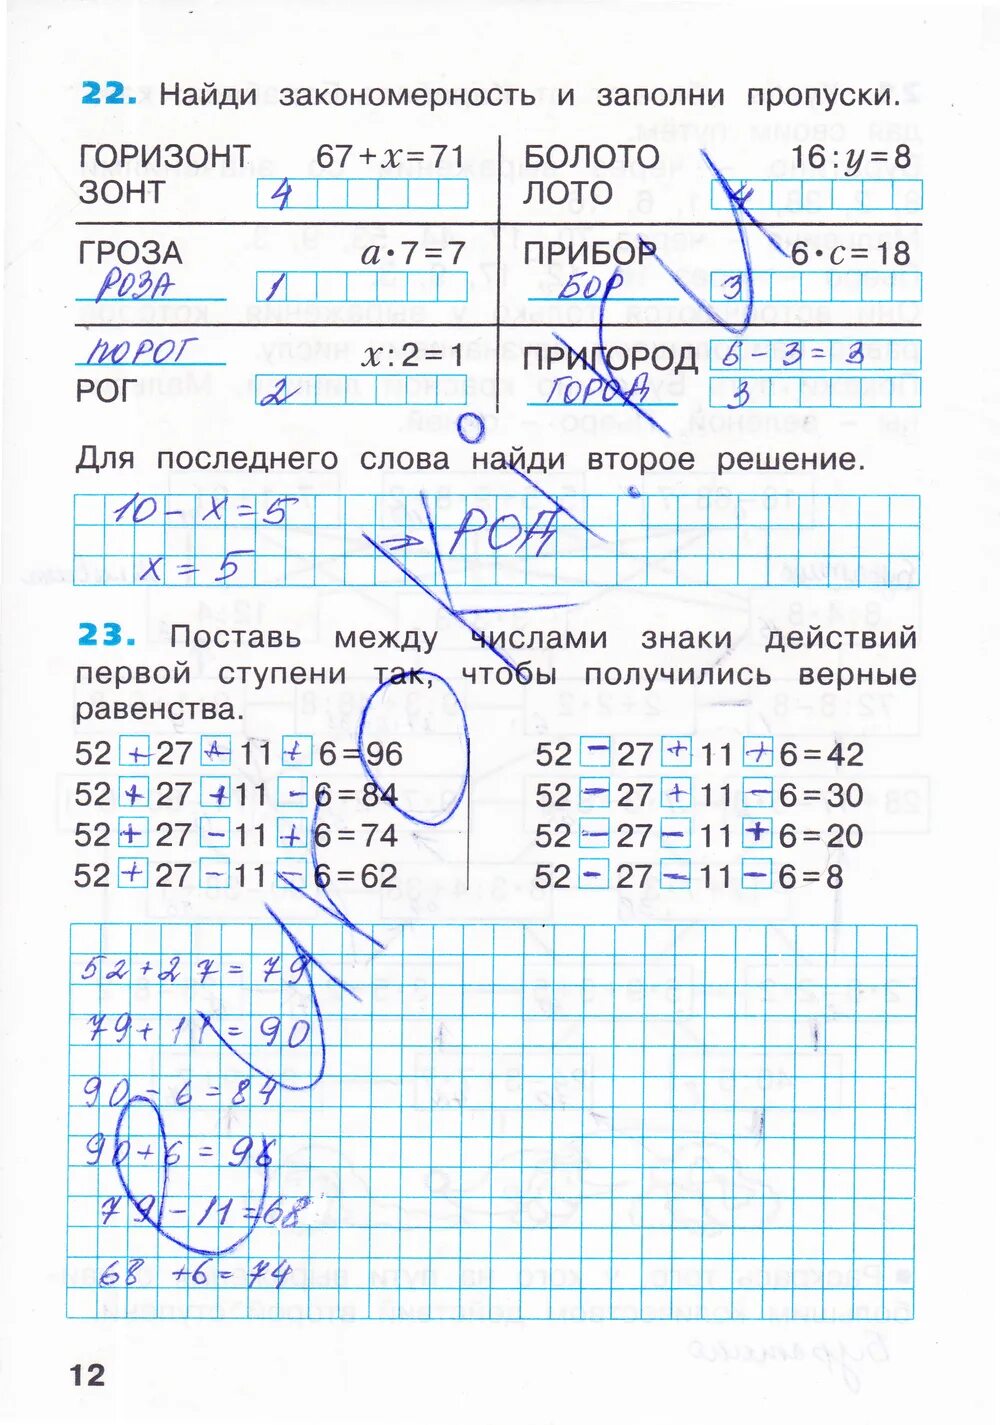 22. Найди закономерность и заполни пропуски.
ГОРИЗОНТ 67+x=71
ЗОНТ 4
БОЛОТО 16:y=8
ЛОТО 4
ГРОЗА a·7=7
РОЗА 1
ПРИБОР 6·c=18
БОР 3
ПОРОГ x:2=1
РОГ 2
ПРИГОРОД 6-3=3
ГОРОД 3
Для последнего слова найди второе решение.
10-x=5 ⇒ РОД
x=5
23. Поставь между числами знаки действий
первой ступени так, чтобы получились верные
равенства.
52+27+11+6=96
52+27+11-6=84
52+27-11+6=74
52+27-11-6=62
52-27+11+6=42
52-27+11-6=30
52-27-11+6=20
52-27-11-6=8
52+27=79
79+11=90
90-6=84
90+6=96
79-11=68
68+6=74
12